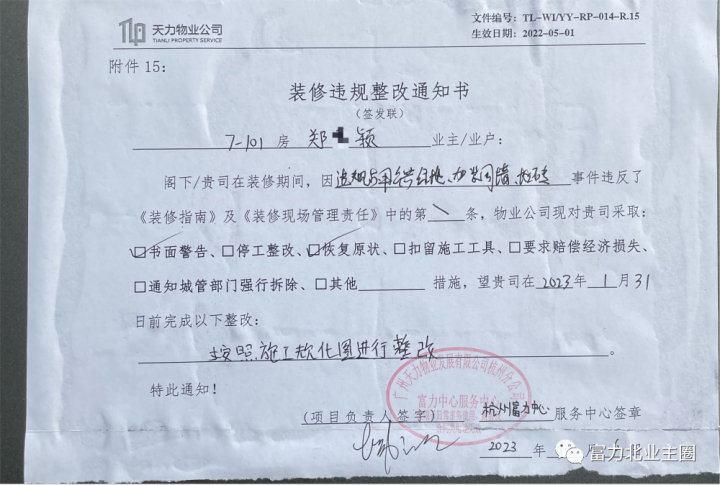 天力物业公司
TIANLI PROPERTY SERVICE
文件编号: TL-WI/YY-RP-014-R.15
生效日期: 2022-05-01
附件 15:
装修违规整改通知书
(签发联)
7-101 房 郑 颖 业主/业户:
阁下/贵司在装修期间，因违规占用公共绿地、加装围墙、 事件违反了
《装修指南》及《装修现场管理责任》中的第 \ 条，物业公司现对贵司采取:
☑书面警告、□停工整改、☑恢复原状、□扣留施工工具、□要求赔偿经济损失、
□通知城管部门强行拆除、□其他 措施，望贵司在 2023 年 1 月 31
日前完成以下整改:
按照施工 图进行整改。
特此通知!
广州天力物业发展有限公司杭州分公司
富力中心服务中心
(项目负责人签字) 杭州富力中心 服务中心签章
2023 年
富力北业主圈